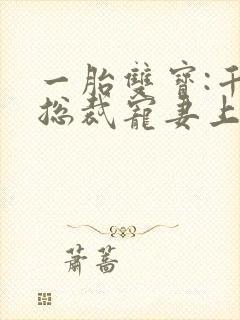 一胎雙寶:千
总裁寵妻上
蕭蒿